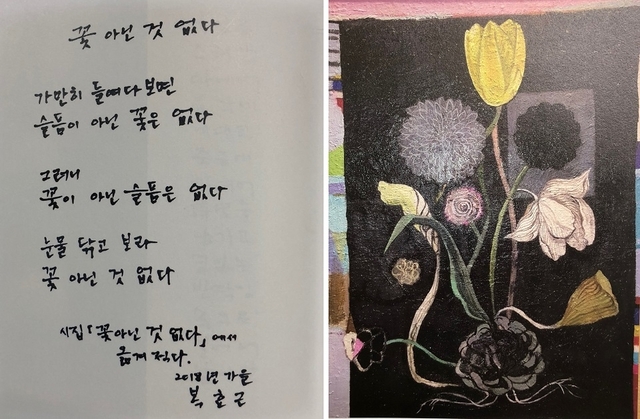 꽃 아닌 것 없다
가만히 들여다 보면
슬픔이 아닌 꽃은 없다
그러니
꽃이 아닌 슬픔은 없다
눈물 닦고 보라
꽃 아닌 것 없다
시집 「꽃 아닌 것 없다」에서
옮겨 적다.
2018년 가을
복효근